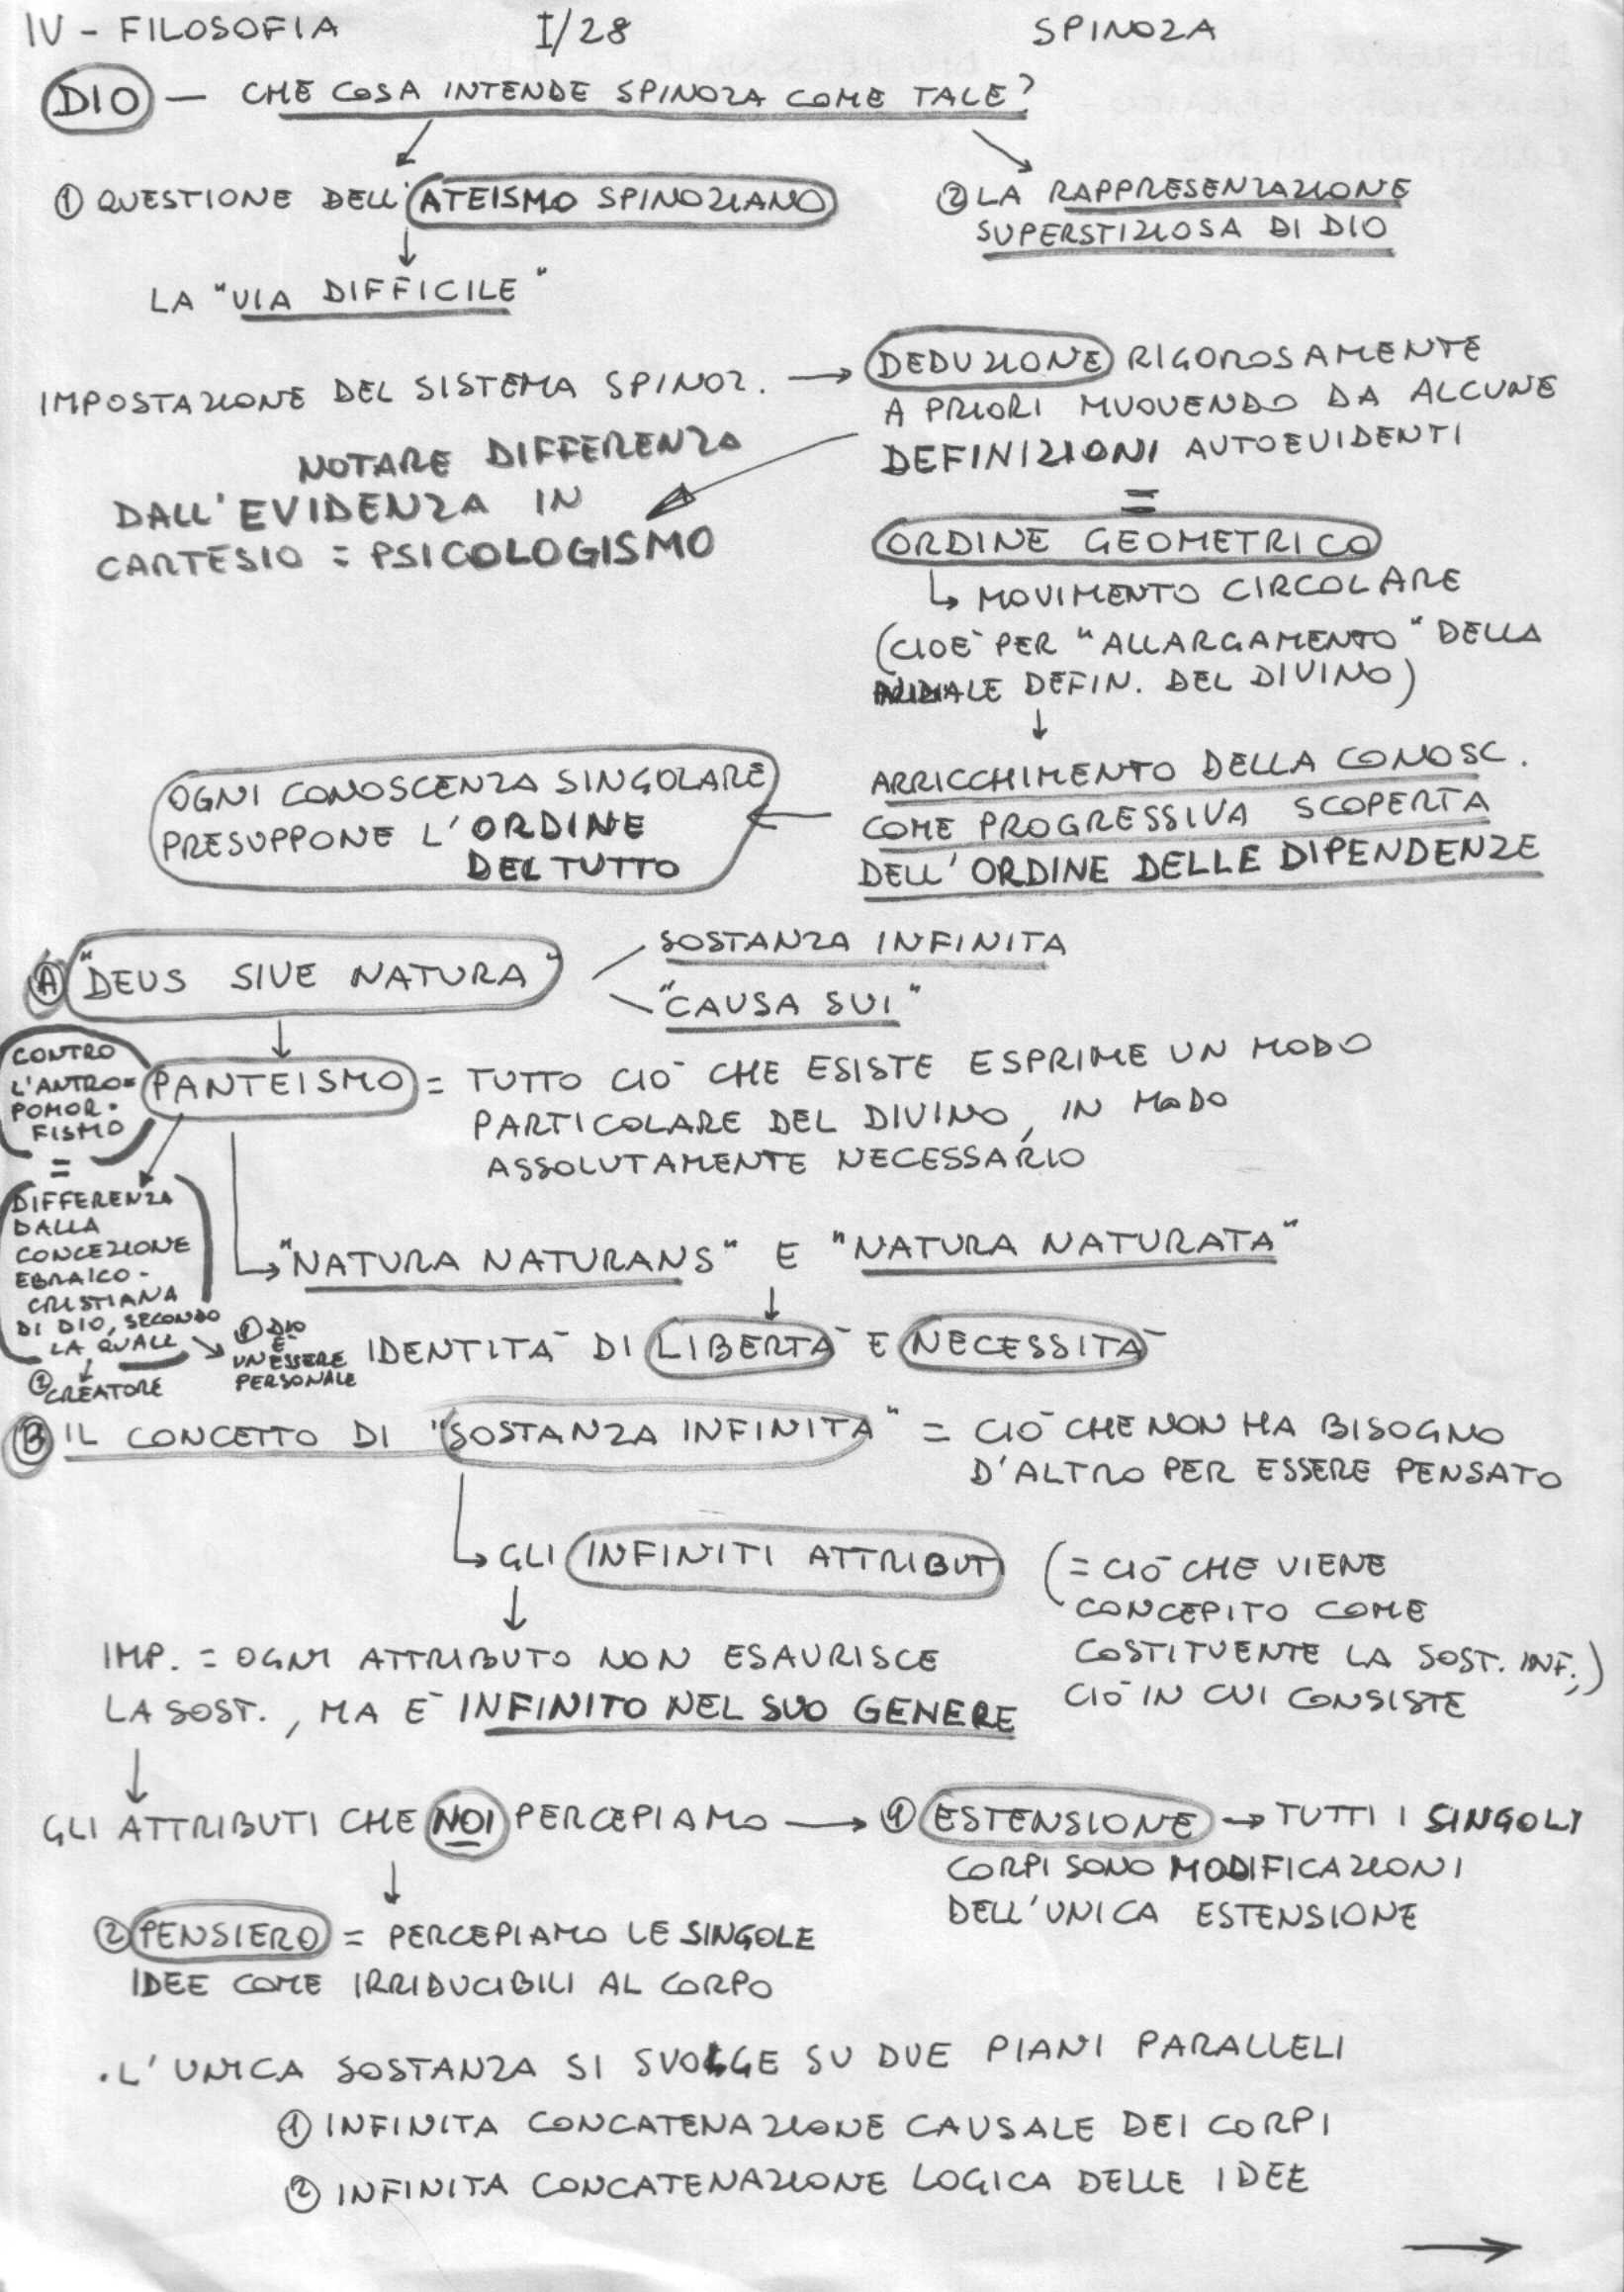 IV - FILOSOFIA I/28 SPINOZA
DIO — CHE COSA INTENDE SPINOZA COME TALE?
① QUESTIONE DELL'ATEISMO SPINOZIANO
LA "VIA DIFFICILE"
② LA RAPPRESENTAZIONE
SUPERSTIZIOSA DI DIO
IMPOSTAZIONE DEL SISTEMA SPINOZ. →
DEDUZIONE RIGOROSAMENTE
A PRIORI MUOVENDO DA ALCUNE
DEFINIZIONI AUTOEVIDENTI
NOTARE DIFFERENZA
DALL'EVIDENZA IN
CARTESIO = PSICOLOGISMO
=
ORDINE GEOMETRICO
↳ MOVIMENTO CIRCOLARE
(CIOÈ PER "ALLARGAMENTO" DELLA
INIZIALE DEFIN. DEL DIVINO)
ARRICCHIMENTO DELLA CONOSC.
COME PROGRESSIVA SCOPERTA
DELL'ORDINE DELLE DIPENDENZE
OGNI CONOSCENZA SINGOLARE
PRESUPPONE L'ORDINE
DEL TUTTO
Ⓐ "DEUS SIVE NATURA"
SOSTANZA INFINITA
"CAUSA SUI"
CONTRO
L'ANTRO=
POMOR-
FISMO
=
DIFFERENZA
DALLA
CONCEZIONE
EBRAICO-
CRISTIANA
DI DIO, SECONDO
LA QUALE
① DIO
È
UN ESSERE
PERSONALE
② CREATORE
PANTEISMO = TUTTO CIÒ CHE ESISTE ESPRIME UN MODO
PARTICOLARE DEL DIVINO, IN MODO
ASSOLUTAMENTE NECESSARIO
↳ "NATURA NATURANS" E "NATURA NATURATA"
IDENTITÀ DI LIBERTÀ E NECESSITÀ
Ⓑ IL CONCETTO DI "SOSTANZA INFINITA" = CIÒ CHE NON HA BISOGNO
D'ALTRO PER ESSERE PENSATO
↳ GLI INFINITI ATTRIBUTI
(= CIÒ CHE VIENE
CONCEPITO COME
COSTITUENTE LA SOST. INF.;
CIÒ IN CUI CONSISTE)
IMP. = OGNI ATTRIBUTO NON ESAURISCE
LA SOST., MA È INFINITO NEL SUO GENERE
GLI ATTRIBUTI CHE NOI PERCEPIAMO → ① ESTENSIONE → TUTTI I SINGOLI
CORPI SONO MODIFICAZIONI
DELL'UNICA ESTENSIONE
② PENSIERO = PERCEPIAMO LE SINGOLE
IDEE COME IRRIDUCIBILI AL CORPO
. L'UNICA SOSTANZA SI SVOLGE SU DUE PIANI PARALLELI
① INFINITA CONCATENAZIONE CAUSALE DEI CORPI
② INFINITA CONCATENAZIONE LOGICA DELLE IDEE
→